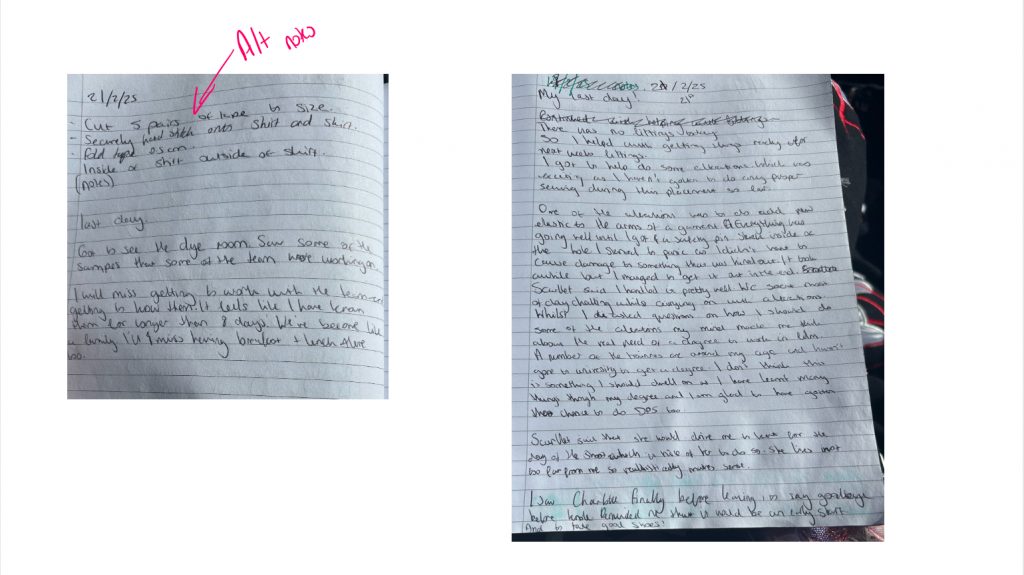 Alt notes
21/2/25
- Cut 5 pairs of tape to size.
- Securely hand stitch onto shirt and skirt.
- Fold tape 0.5cm.
Inside of shirt outside of skirt.
(notes)
last day.
Got to see the dye room. Saw some of the
samples that some of the team were working on
I will miss getting to work with the team and
getting to know them. It feels like I have known
them for longer than 8 days. We've become like
a family I'll miss having breakfast + lunch there
too.
21/2/25
My last day!
21st
There was no fittings today
So I helped with getting things ready for
next weeks fittings.
I got to help do some alterations which was
exciting as I haven't gotten to do any proper
sewing during this placement so far.
One of the alterations was to add new
elastic to the arms of a garment. Everything was
going well until I got a safety pin stuck inside of
the hole I started to panic as I didn't want to
cause damage to something that was hired out. It took
awhile but I managed to get it out in the end.
Scarlet said I handled it pretty well. We spent most
of day chatting while carrying on with alterations.
Whilst I asked questions on how I should do
some of the alterations my mind made me think
about the real need of a degree to work in
A number of the trainees are around my age and haven't
gone to university to get a degree. I don't think this
is something I should dwell on as I have learnt many
things though my degree and I am glad to have gotten
the chance to do DPS too.
Scarlet said that she would drive me to for the
day of the shoot which is nice of her to do so. She lives not
too far from me so realistically makes sense.
I saw Charlotte finally before leaving to say goodbye
before reminded me that it would be an early start
And to take good shoes!